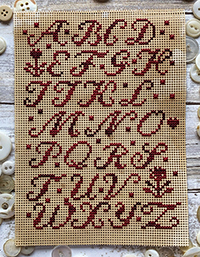 A B C D
E F G H
I J K L
M N O
P Q R S
T U V
W X Y Z